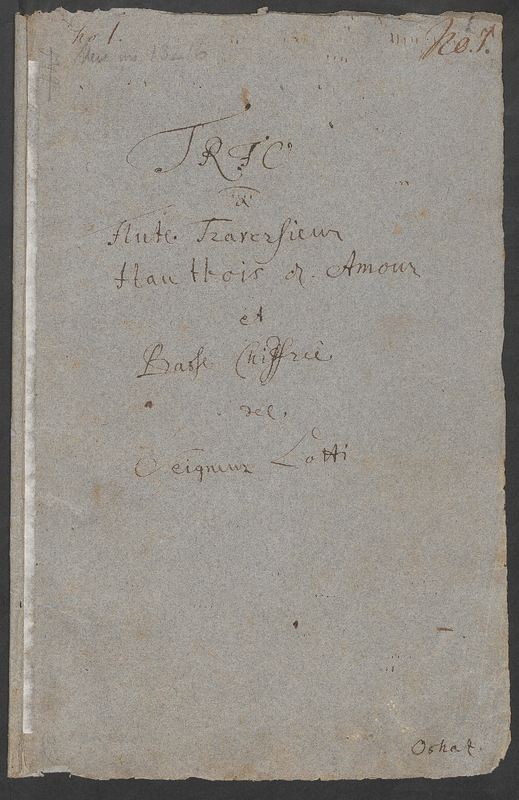 No 1.
No. 7.
TRIO
a
Flute. Traversieur
Hautbois d. Amour
et
Basse Chiffrée
del.
Seigneur Lotti